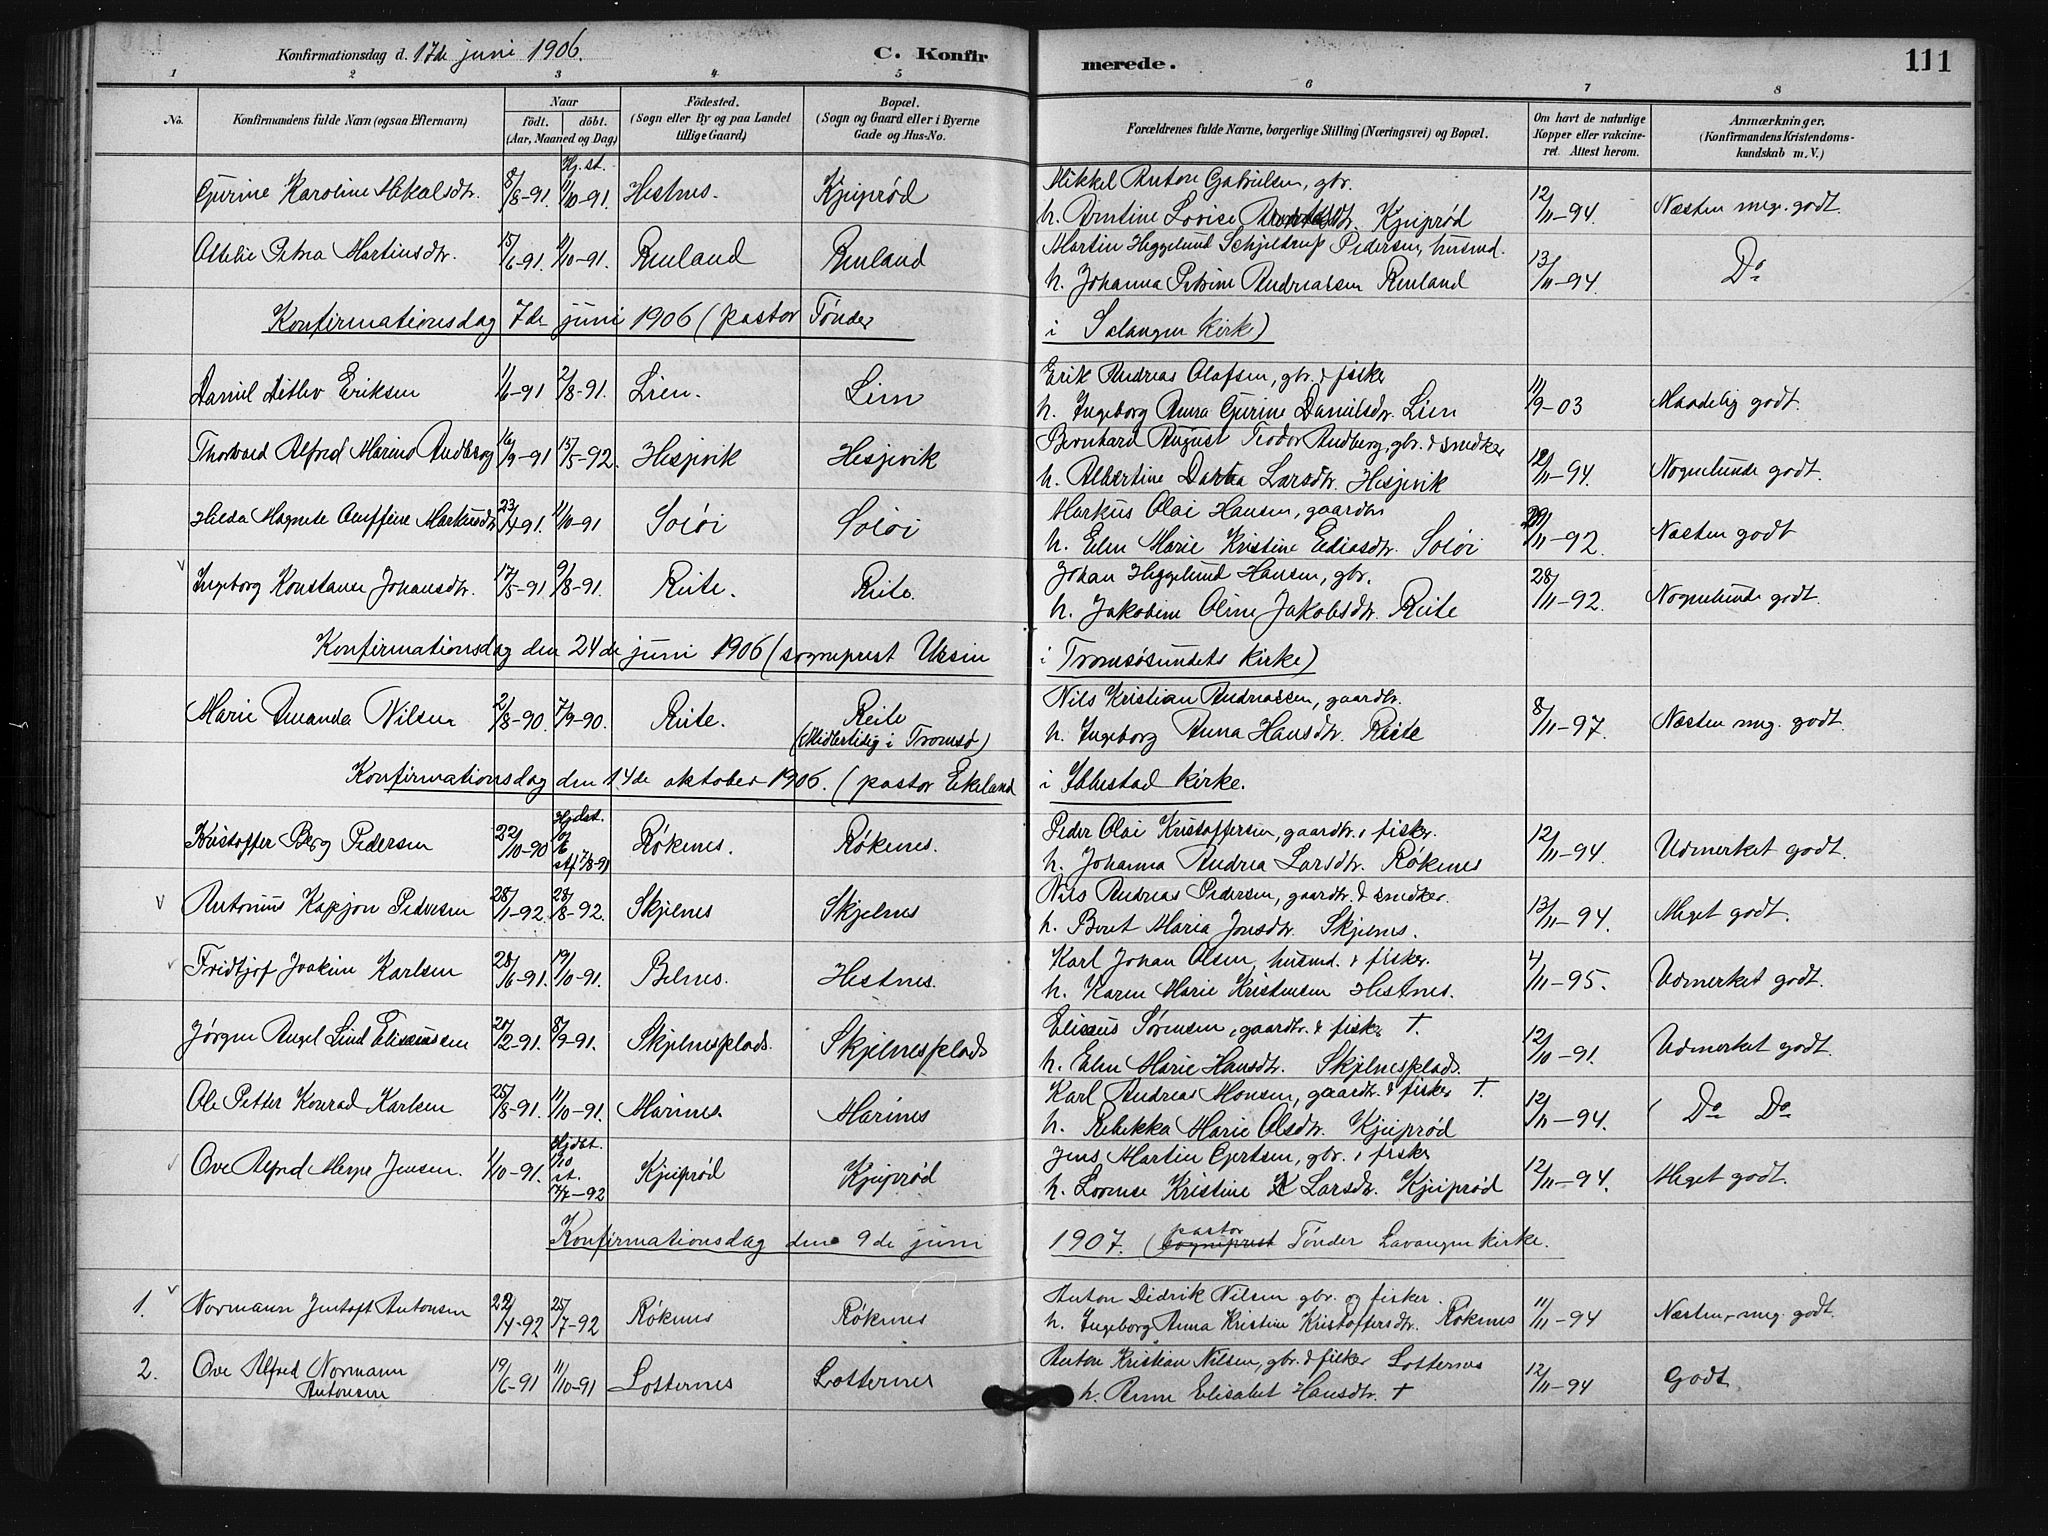 Konfirmationsdag d. 17de juni 1906. C. Konfirmerede. 111
1 2 3 4 5 6 7 8
No. Konfirmandens fulde Navn (ogsaa Efternavn) Naar födt. döbt. (Aar, Maaned og Dag) Födested. (Sogn eller By og paa Landet tillige Gaard.) Bopæl. (Sogn og Gaard eller i Byerne Gade og Hus-No. Forældrenes fulde Navne, borgerlige Stilling (Næringsvei) og Bopæl. Om havt de naturlige Kopper eller vakcineret. Attest herom. Anmærkninger. (Konfirmandens Kristendomskundskab m. V.)
Gurine Karoline Mikalsdtr. 8/8-91 Hj. st. 11/10-91. Hestnes. Kjuprød Mikkel Anton Gabrielsen, gbr. 12/11-94. Næsten meg. godt.
h. Arntine Lovise Kjuprød
Ottelie Petrea Martinsdtr. 15/6-91. 11/10-91. Renland Renland Martin Heggelund Schjeldrup Pedersen, husmd. 13/11-94. Do
h. Johanna Petrine Andreassen Renland
Konfirmationsdag 7de juni 1906 (pastor Tønder i Salangen Kirk)
Daniel Detlev Eriksen 1/6-91 2/8-91. Lien. Lien Erik Andreas Olafsen, gbr. & fisker 11/9-03 Maadelig godt.
h. Ingeborg Anna Gurine Danielsdtr. Lien
Thorvard Alfred Marino Andberg 16/9-91 15/5-92. Hesjevik Hesjevik Bernhard August Teodor Andberg, gbr. & snedker 12/11-94. Nogenlunde godt.
h. Albertine Dortea Larsdtr. Hesjevik
Hilda Magnete Oluffine Markusdtr 23/4-91. 11/10-91 Soløi Soløi Markus Olai Hansen, gaardbr. 29/11-92. Næsten godt
h. Elen Marie Kristine Eliasdtr. Soløi
Ingeborg Konstanse Johansdtr. 17/5-91 9/8-91. Reite. Reite. Johan Heggelund Hansen, gbr. 28/11-92. Nogenlunde godt.
h. Jakobine Oline Jakobsdtr. Reite
Konfirmationsdag den 24de juni 1906 (sogneprest Ursin i Tromsøsundets kirke)
Marie Amanda Nilsen 2/8-90 7/9-90. Reite. Reite (Midlertidig i Tromsø) Nils Kristian Andreassen, gaardbr. 8/11-97. Næsten meg. godt.
h. Ingeborg Anna Hansdtr. Reite
Konfirmationsdag den 14de oktober 1906. (pastor Eikeland i Ibbestad kirke.
Kristoffer Berg Pedersen 22/10-90 Hjdst. st. 17/8-91 Røkenes. Røkenes. Peder Olai Kristoffersen, gaardbr. & fisker. 12/11-94. Udmerket godt.
h. Johanna Andrea Larsdtr. Røkenes
Antonius Kapjon Pedersen 28/1-92. 28/8-92. Skjelnes Skjelnes Nils Andreas Pedersen, gaardbr. & snedker. 13/11-94. Meget godt.
h. Beret Maria Jonsdtr. Skjelnes.
Fridtjof Joakim Karlsen 28/6-91. 19/10-91. Belnes. Hestnes. Karl Johan Olsen, husmd. & fisker. 4/11-95. Udmerket godt.
h. Karen Marie Kristensen Hestnes.
Jørgen Angel Lind Eliseussen 20/2-91. 8/9-91. Skjelnesplads. Skjelnesplads Eliseus Sørensen, gaardbr. & fisker †. 12/10-91. Udmerket godt.
h. Elen Marie Hansdtr. Skjelnesplads.
Ole Petter Konrad Karlsen 25/8-91. 11/10-91. Marines. Marines Karl Andreas Monsen, gaardbr. & fisker †. 12/11-94. Do Do
h. Rebekka Marie Olsdtr. Kjuprød
Ove Alfred Meyer Jensen. 1/10-91. Hjdbt. 1/10 st. 17/7-92 Kjuprød Kjuprød Jens Martin Gjertsen, gbr. & fisker 12/11-94. Meget godt.
h. Lovise Kristine Larsdtr. Kjuprød
Konfirmationsdag den 9de juni 1907. (sogneprest pastor Tønder Lavangen kirke.
1. Normann Jentoft Antonsen 22/4-92 25/7-92 Røkenes Røkenes Anton Didrik Nilsen gbr. og fisker. 11/11-94 Næsten meg. godt
h. Ingeborg Anna Kristine Kristoffersdtr. Røkenes
2. Ove Alfred Normann Antonsen 19/6-91 11/10-91 Lotternes Lotternes Anton Kristian Nilsen, gbr. & fisker Lotternes 12/11-94 Godt
h. Anne Elisabet Hansdtr. †